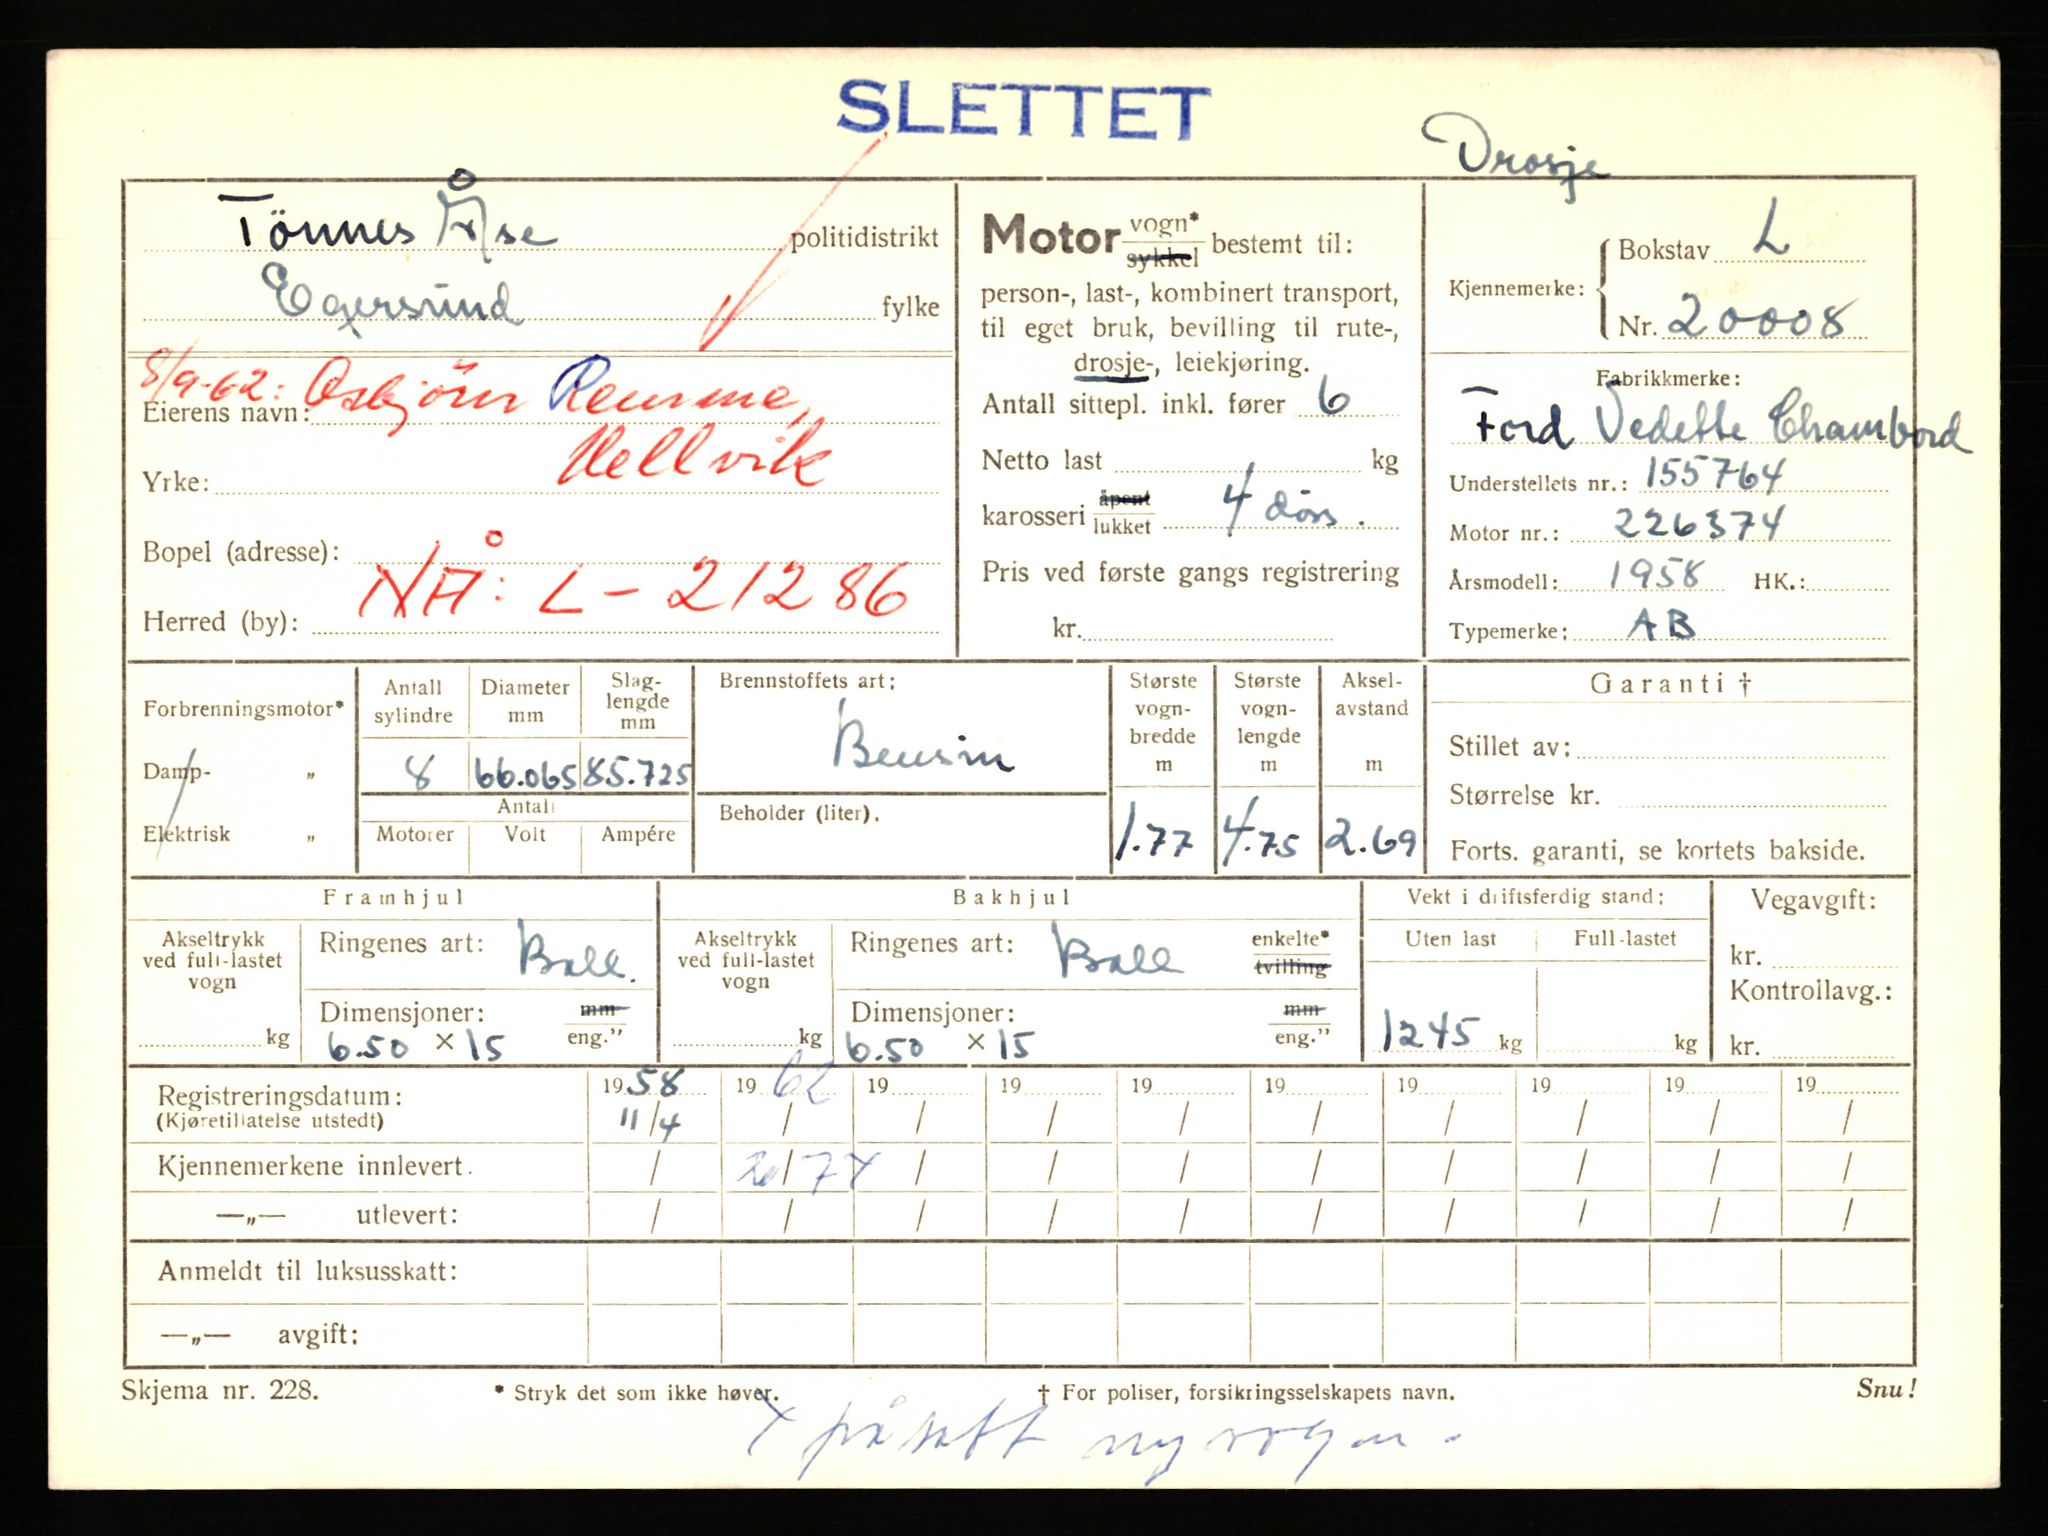 SLETTET
Drosje
Tönnes Åse politidistrikt
Egersund fylke
8/9-62: Osbjörn Remme,
Eierens navn:
Hellvik
Yrke:
Bopel (adresse):
NÅ: L - 21286
Herred (by):
Motor vogn* sykkel bestemt til:
person-, last-, kombinert transport,
til eget bruk, bevilling til rute-,
drosje-, leiekjøring.
Antall sittepl. inkl. fører 6
Netto last kg
karosseri åpent lukket 4 dörs.
Pris ved første gangs registrering
kr.
Kjennemerke: Bokstav L
Nr. 20008
Fabrikkmerke:
Ford Vedette Chambord
Understellets nr.: 155764
Motor nr.: 226374
Årsmodell: 1958 HK.:
Typemerke: AB
Forbrenningsmotor*
Damp- „
Elektrisk „
Antall sylindre
8
Diameter mm
66.065
Slaglengde mm
85.725
Antall
Motorer Volt Ampére
Brennstoffets art:
Bensin
Beholder (liter).
Største vogn-bredde m
1.77
Største vogn-lengde m
4.75
Aksel-avstand m
2.69
Garanti †
Stillet av:
Størrelse kr.
Forts. garanti, se kortets bakside.
Framhjul
Akseltrykk ved full-lastet vogn
kg
Ringenes art: Ball.
Dimensjoner: mm
6.50 × 15 eng.”
Bakhjul
Akseltrykk ved full-lastet vogn
kg
Ringenes art: Ball enkelte* tvilling
Dimensjoner: mm
6.50 × 15 eng.”
Vekt i driftsferdig stand:
Uten last Full-lastet
1245 kg kg
Vegavgift:
kr.
Kontrollavg.:
kr.
Registreringsdatum: 1958 1962 19 19 19 19 19 19 19 19
(Kjøretillatelse utstedt) 11/4 / / / / / / / / /
Kjennemerkene innlevert. / / / / / / / / /
—„— utlevert: / / / / / / / / / /
Anmeldt til luksusskatt:
—„— avgift:
Skjema nr. 228. * Stryk det som ikke høver. † For poliser, forsikringsselskapets navn. Snu!
x påsatt ny vogn.